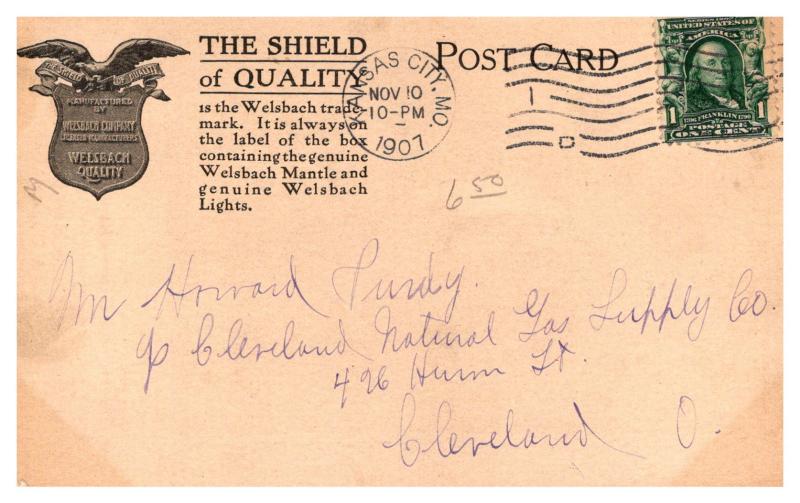 THE SHIELD OF QUALITY
MANUFACTURED
BY
WELSBACH COMPANY
LICENSED MANUFACTURERS
WELSBACH
QUALITY
THE SHIELD
of QUALITY
is the Welsbach trade-
mark. It is always on
the label of the box
containing the genuine
Welsbach Mantle and
genuine Welsbach
Lights.
POST CARD
KANSAS CITY, MO.
NOV 10
10-PM
1907
1
D
SERIES 1902
UNITED STATES OF
AMERICA
1706 FRANKLIN 1790
1 POSTAGE 1
ONE CENT
6 50
M
Mr Howard Purdy.
c/o Cleveland Natural Gas Supply Co.
496 Huron St.
Cleveland O.